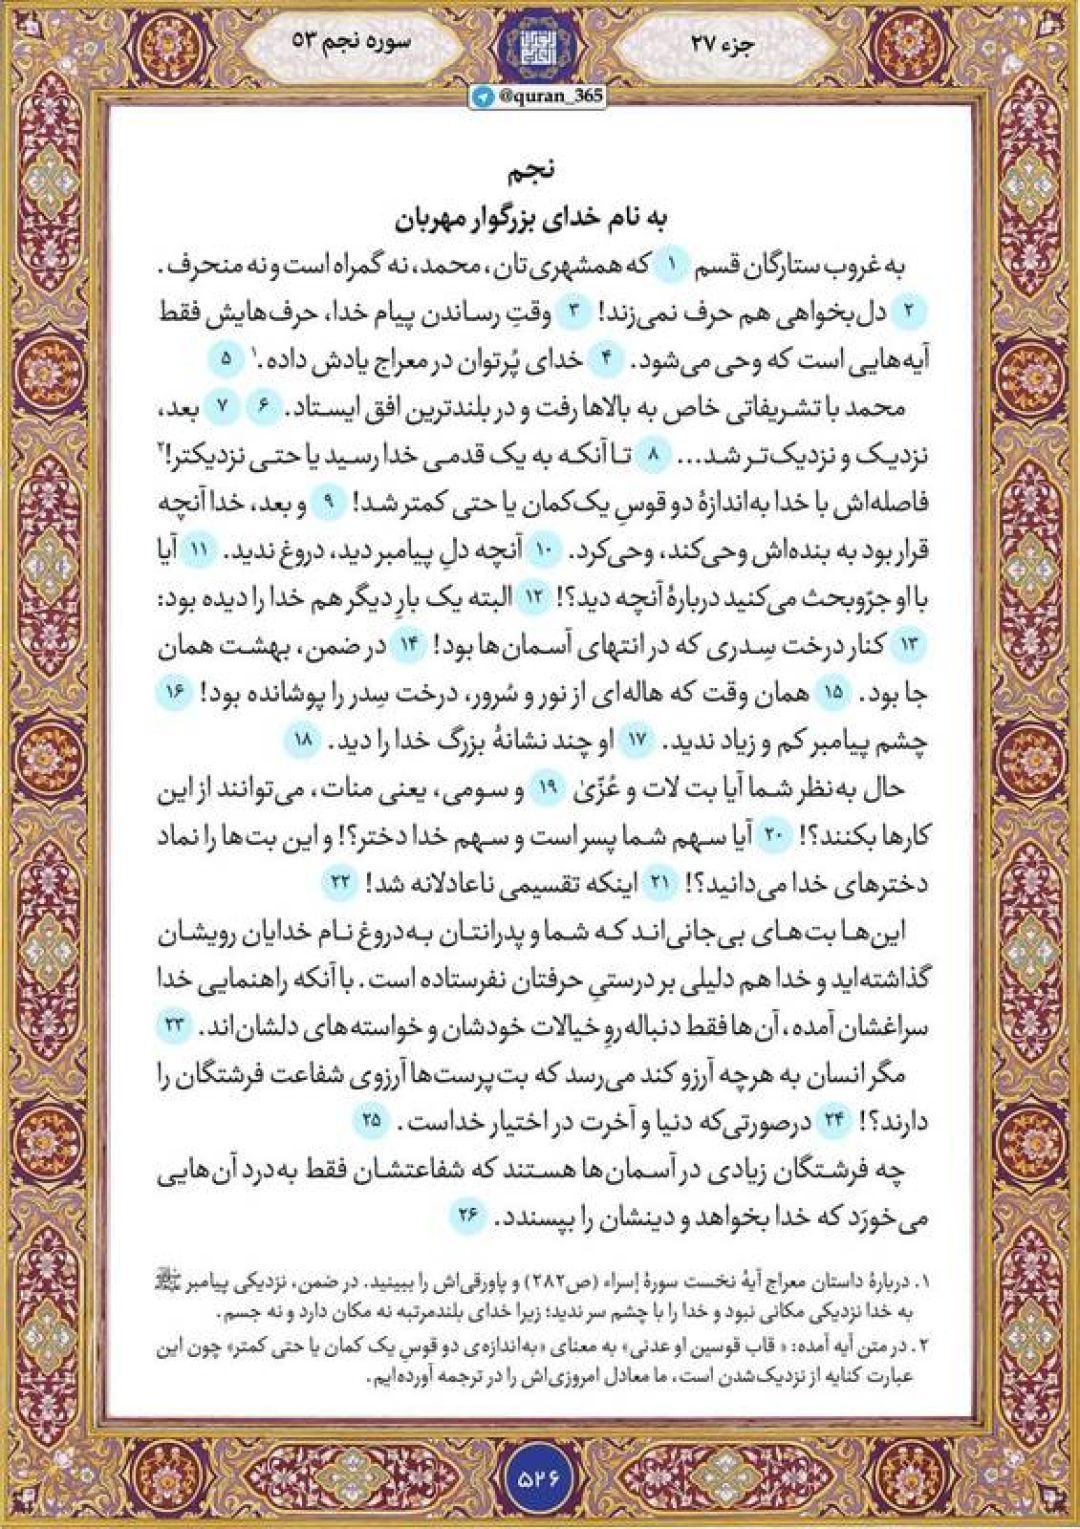 جزء ۲۷
سوره نجم ۵۳
@quran_365
نجم
به نام خدای بزرگوار مهربان
به غروب ستارگان قسم ۱ که همشهری‌تان، محمد، نه گمراه است و نه منحرف.
۲ دل‌بخواهی هم حرف نمی‌زند! ۳ وقتِ رساندن پیام خدا، حرف‌هایش فقط
آیه‌هایی است که وحی می‌شود. ۴ خدای پُرتوان در معراج یادش داده.۱ ۵
محمد با تشریفاتی خاص به بالاها رفت و در بلندترین افق ایستاد. ۶ ۷ بعد،
نزدیک و نزدیک‌تر شد... ۸ تا آنکه به یک قدمی خدا رسید یا حتی نزدیکتر!۲
فاصله‌اش با خدا به‌اندازهٔ دو قوسِ یک‌کمان یا حتی کمتر شد! ۹ و بعد، خدا آنچه
قرار بود به بنده‌اش وحی‌کند، وحی‌کرد. ۱۰ آنچه دلِ پیامبر دید، دروغ ندید. ۱۱ آیا
با او جرّوبحث می‌کنید دربارهٔ آنچه دید؟! ۱۲ البته یک بارِ دیگر هم خدا را دیده بود:
۱۳ کنار درخت سِدری که در انتهای آسمان‌ها بود! ۱۴ در ضمن، بهشت همان
جا بود. ۱۵ همان وقت که هاله‌ای از نور و سُرور، درخت سِدر را پوشانده بود! ۱۶
چشم پیامبر کم و زیاد ندید. ۱۷ او چند نشانهٔ بزرگ خدا را دید. ۱۸
حال به‌نظر شما آیا بت لات و عُزّیٰ ۱۹ و سومی، یعنی منات، می‌توانند از این
کارها بکنند؟! ۲۰ آیا سهم شما پسر است و سهم خدا دختر؟! و این بت‌ها را نماد
دخترهای خدا می‌دانید؟! ۲۱ اینکه تقسیمی ناعادلانه شد! ۲۲
این‌ها بت‌های بی‌جانی‌اند که شما و پدرانتان به‌دروغ نام خدایان رویشان
گذاشته‌اید و خدا هم دلیلی بر درستیِ حرفتان نفرستاده است. با آنکه راهنمایی خدا
سراغشان آمده، آن‌ها فقط دنباله‌روِ خیالات خودشان و خواسته‌های دلشان‌اند. ۲۳
مگر انسان به هرچه آرزو کند می‌رسد که بت‌پرست‌ها آرزوی شفاعت فرشتگان را
دارند؟! ۲۴ درصورتی‌که دنیا و آخرت در اختیار خداست. ۲۵
چه فرشتگان زیادی در آسمان‌ها هستند که شفاعتشان فقط به‌درد آن‌هایی
می‌خورَد که خدا بخواهد و دینشان را بپسندد. ۲۶
۱. دربارهٔ داستان معراج آیهٔ نخست سورهٔ إسراء (ص۲۸۲) و پاورقی‌اش را ببینید. در ضمن، نزدیکی پیامبر ﷺ
به خدا نزدیکی مکانی نبود و خدا را با چشم سر ندید؛ زیرا خدای بلندمرتبه نه مکان دارد و نه جسم.
۲. در متن آیه آمده: « قاب قوسین او عدنی» به معنای «به‌اندازه‌ی دو قوسِ یک کمان یا حتی کمتر» چون این
عبارت کنایه از نزدیک‌شدن است، ما معادل امروزی‌اش را در ترجمه آورده‌ایم.
۵۲۶